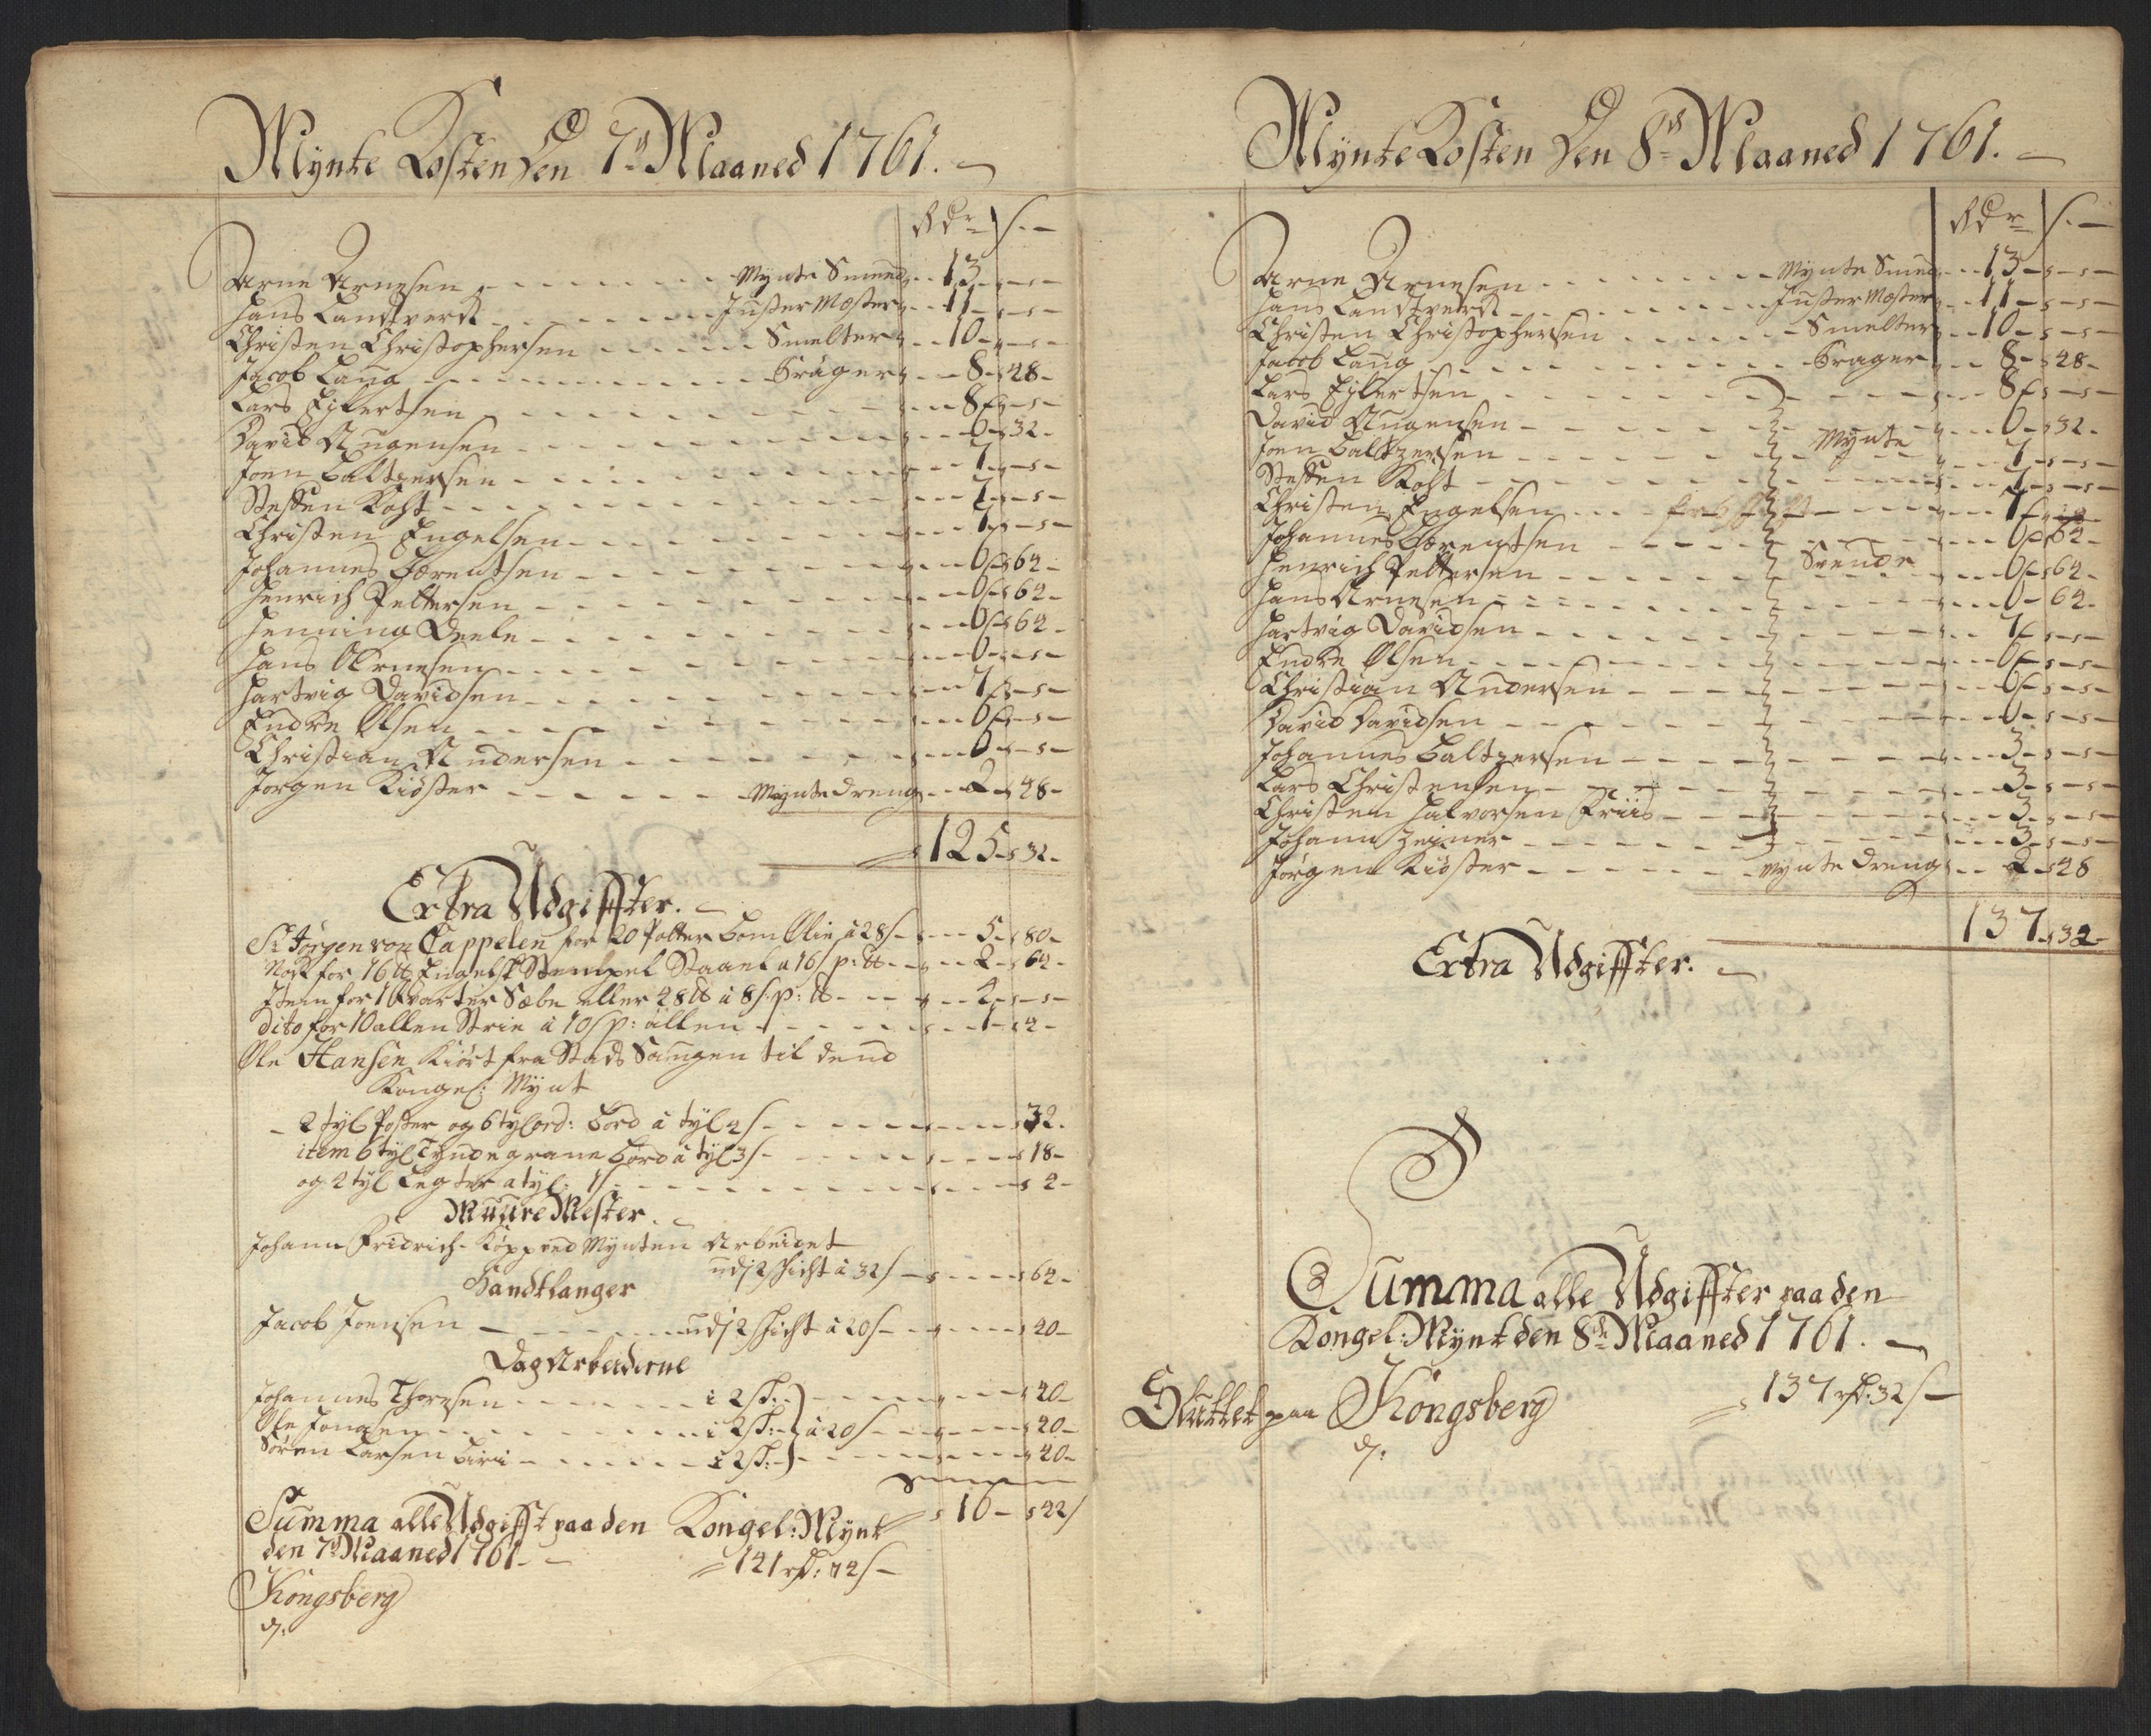 Mynte Kosten Den 7de Maaned 1761.
Rdr s.
Arne Arnesen - - - Mynte Smed - - 13 - -
Hans Landtverdt - - - Juster Mester - - 11 - -
Christen Christophersen - - - Smelter - - 10 - -
Jacob Laug - - - Præger - - 8 - 48 -
Lars Eylertsen - - - 8 - -
David Augensen - - - 32 -
Joen Baltzersen - - - 7 - -
Steffen Kost - - - 7 - -
Christen Engelsen - - - 7 - -
Johannes Bærentsen - - - 6 - 64 -
Henrich Pettersen - - - 6 - 64 -
Henning Deele - - - 6 - 64 -
Hans Arnesen - - - 6 - -
Hartvig Davidsen - - - 7 - -
Endre Olsen - - - 6 - -
Christian Andersen - - - 6 - -
Jørgen Kiøster - - - Mynte Dreng - - 2 - 48 -
125 - 32 -
Extra Udgiffter.
Sr Jørgen von Cappelen for 20 Potter Bom Olie á 28 s - - 5 - 80 -
Nok for 16 ℔ Engelsk Stempel Staael a 16 s p: ℔ - - 2 - 64 -
Item for 1 Qvarter Sæbe eller 48 ℔ á 8 s p: ℔ - - 4 - -
dito for 10 allen Strie á 10 s p: allen - - 1 - 4 -
Ole Hansen Kiørt fra Stads Saugen til dend
Kongel: Mynt
- 2 tyl Poster og 6 tyl ord: Bord á tyl 4 s - - 32 -
item 6 tyl Tyndegrane Bord á tyl 3 s - - 18 -
og 2 tyl Legter a tyl: 1 s - - 2 -
Muure Mester
Johann Fridrich Köpp ved Mynten Arbeidet
udj 2 Schicht á 32 s - - 64 -
Handtlanger
Jacob Joensen - - - udj 2 Schicht á 20 s - - 40 -
Dag Arbeiderne
Johannes Thoresen - - - i 2 Sch: - - 40 -
Ole Jonasen - - - i 2 Sch: á 20 s - - 40 -
Søren Larsen Biri - - - i 2 Sch: - - 40 -
16 - 42 s
Summa alle Udgifft paa den Kongel: Mynt
den 7de Maaned 1761 -
141 rd: 74 s -
Kongsberg
d:
Mynte Kosten Den 8de Maaned 1761. -
Rdr s. -
Arne Arnesen - - - Mynte Smed - - 13 - -
Hans Landtverdt - - - Juster Mester - - 11 - -
Christen Christophersen - - - Smelter - - 10 - -
Jacob Laug - - - Præger - - 8 - 48 -
Lars Eylertsen - - - 8 - -
David Augensen - - - 32 -
Joen Baltzersen - - - Mynte - - 7 - -
Steffen Kost - - - 7 - -
Christen Engelsen - - - 7 - -
Johannes Bærentsen - - - 6 - 64 -
Henrich Pettersen - - - Svende - - 6 - 64 -
Hans Arnesen - - - 6 - 64 -
Hartvig Davidsen - - - 7 - -
Endre Olsen - - - 6 - -
Christian Andersen - - - 6 - -
David Davidsen - - - 6 - -
Johannes Baltzersen - - - 3 - -
Lars Christensen - - - 3 - -
Christen Halvorsen Friis - - - 3 - -
Johann Zeiner - - - 3 - -
Jørgen Kiøster - - - Mynte Dreng - - 2 - 48
137 - 32 -
Extra Udgiffter. -
Summa alle Udgiffter paa den
Kongel: Mynt den 8de Maaned 1761. -
137 rd: 32 s -
Sluttet paa Kongsberg
d: